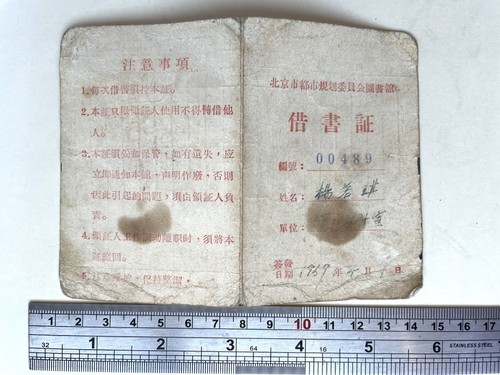 注意事項
1.每次借書須持本証。
2.本証只限領証人使用不得轉借他
人。
3.本証須妥加保管，如有遺失，应
立即通知本館，声明作廢，否則
因此引起的問題，須由領証人負
責。
4.領証人工作調動離职时，须將本
証繳回。
5. 保持整潔
北京市都市規划委員会圖書館
借書証
編號：00489
姓名：楊
單位：
簽發
日期 1957年 月 日
1 2 3 4 5 6 7 8 9 10 11 12 13 14 15 16 17
32 1 2 3 64 4 5 6 STAINLESS STEEL